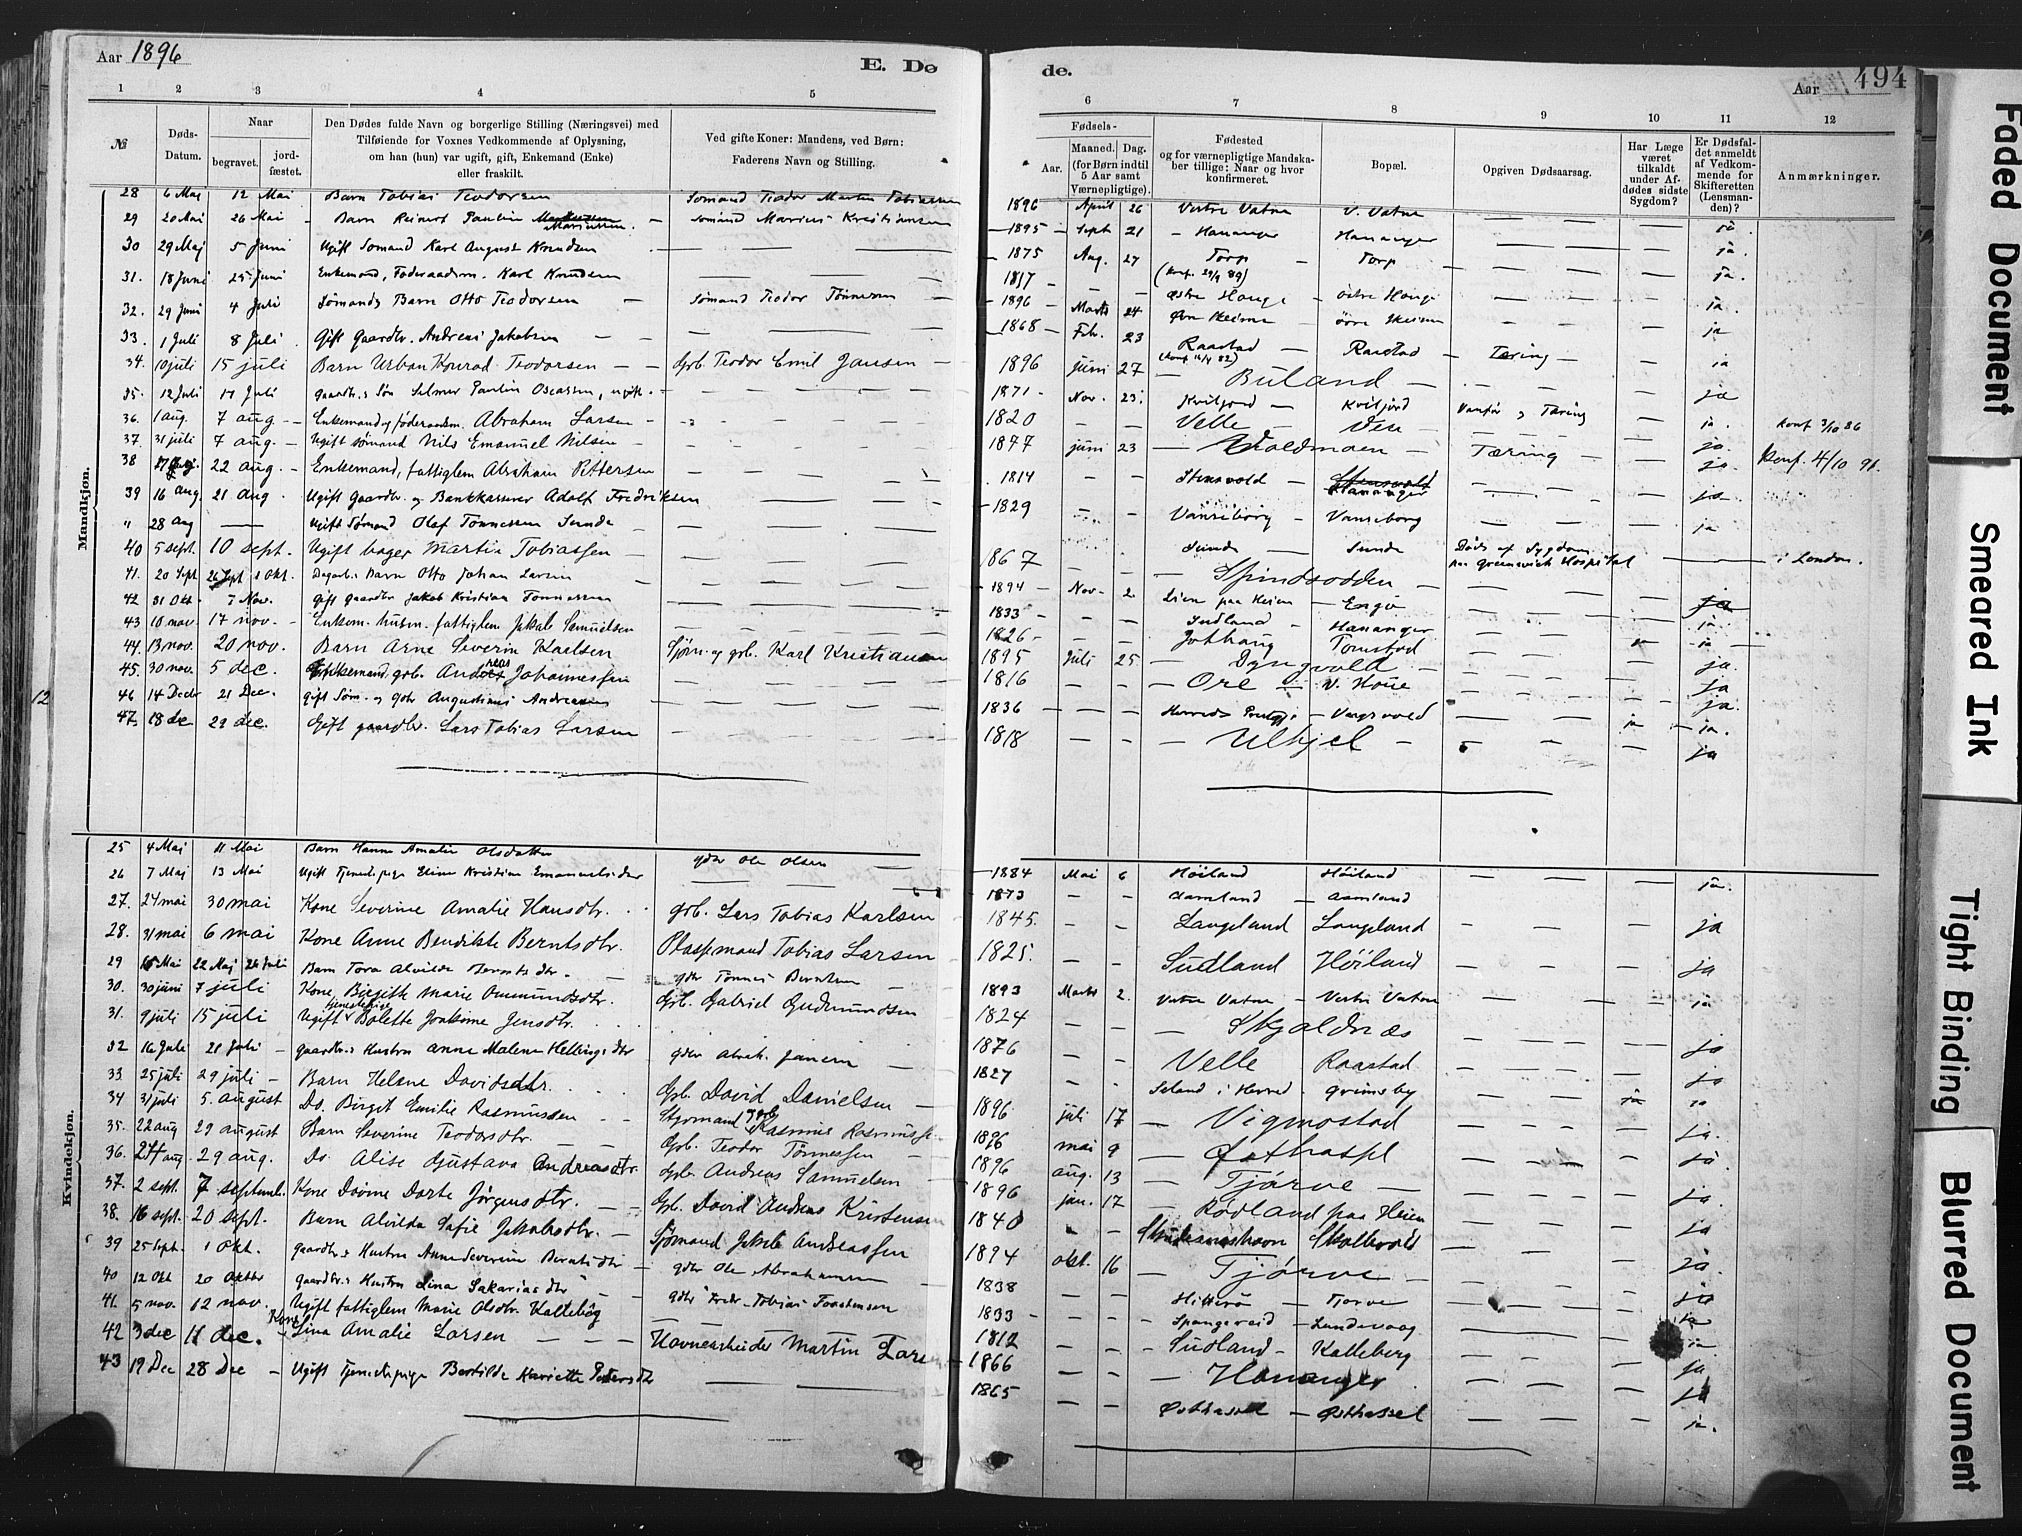 Aar 1896
E. Dø
1 2 3 4 5
№
Døds-Datum.
Naar
begravet.
jord-fæstet.
Den Dødes fulde Navn og borgerlige Stilling (Næringsvei) med
Tilføiende for Voxnes Vedkommende af Oplysning,
om han (hun) var ugift, gift, Enkemand (Enke)
eller fraskilt.
Ved gifte Koner: Mandens, ved Børn:
Faderens Navn og Stilling.
Mandkjøn.
28 6 Maj 12 Mai Barn Tobias Teodorsen Sømand Teodor Martin Tobiassen
29 20 Mai 26 Mai - Barn Reinert Paulin Mariussen. - sømand Marius Kristiansen
30 29 Maj 5 Juni Ugift Sømand Karl August Knudsen
31. 18 Juni 25 Juni Enkemand, Føderaadsm. Karl Knudsen
32. 29 Juni 4 Juli Sømands Barn Otto Teodorsen - Sømand Teodor Tønnessen
33. 1 Juli 8 Juli Gift Gaardbr. Andreas Jakobsen
34. 10 juli 15 juli Barn Urban Konrad Teodorsen - Grb. Teodor Emil Jansen
35. 12 Juli 17 Juli gaardbr.s Søn Selmer Paulin Oscarsen, ugift.
36. 1 aug. 7 aug. - Enkemand og føderaadsm. Abraham Larsen
37. 31 juli 7 aug. - Ugift sømand Nils Emanuel Nilsen
38 22 aug. - Enkemand, fattiglem Abraham Pettersen
39 16 aug. 21 aug. Ugift Gaardbr. og Bankkasserer Adolf Fredriksen
" 28 aug — Ugift Sømand Olaf Tønnessen Sunde
40 5 sept. 10 sept. Ugift bager Martin Tobiassen
41. 20 Sept 26 Sept 1 Okt. Dagarb. Barn Otto Johan Larsen
42 31 Okt. 7 Nov. Gift gaardbr Jakob Kristian Tønnessen
43 10 nov 17 nov. - Enkem. husm. fattiglem Jakob Samuelsen
44. 13 nov. 20 nov. Barn Arne Severin Karlsen Sjøm. og grb. Karl Kristiansen
45. 30 nov. 5 dec. Enkemand, grb. Andreas Johannessen
46 14 Decbr 21 Dec. Gift Søm. og Gbr Augustinus Andreasen
47 18 dec 29 dec. Gift gaardbr. Lars Tobias Larsen
12
Kvindekjøn.
25 4 Maj 11 Mai Barn Hanne Amalie Olsdatter gdbr Ole Olsen
26 7 Maj 13 Mai Ugift Tjenestepige Eline Kristine Emanuelsdtr
27. 24 mai 30 mai Kone Severine Amalie Hansdtr. grb. Lars Tobias Karlsen
28. 31 mai 6 mai Kone Anne Bendikte Berntsdtr. Pladsmand Tobias Larsen
29 15 Mai 22 Maj 26 Juli Barn Tora Alvilde Berntsdtr. gdbr Tønnes Berntsen
30. 30 juni 7 juli Kone Birgitte Marie Ommundsdtr. Grb. Gabriel Gudmundsen
31. 9 juli 15 juli Ugift tjenestepige Bolette Joakime Jensdtr.
32 16 Juli 21 Juli - gaardbr.s Hustru Anne Malene Hellesdtr gdbr Abrah. Jansen
33. 25 juli 29 juli - Barn Helene Davidsdtr. Grb. David Danielsen
34 31 juli 5. august Do. Birgit Emilie Rasmussen Styrmand og grb Rasmus Rasmussen
35. 22 aug 29 august Barn Severine Teodorsdtr. Grb. Teodor Tønnessen
36. 24 aug 29 aug. Do. Alise Gustava Andreasdtr. Grb. Andreas Samuelsen
37. 2 sept. 7 septemb. Kone Dorte Jørgensdtr. Grb. David Andreas Kristensen
38. 16 sept. 20 sept. Barn Alvilda Sofie Jakobsdtr. Sjømand Jakob Andreassen
39 25 Sept. 1 Okt. gaardbr.s Hustru Anne Severine Berntsdtr gdbr Ole Abrahamsen
40 12 Okt 20 Oktbr gaardbr.s Hustru Lina Sakariasdtr gdbr Fredr. Tobias Torstensen
41. 5 nov. 12 nov. Ugift fattiglem Marie Olsdtr. Kalleberg
42 3 dec 11 dec. Kone Lina Amalie Larsen Havnearbeider Martin Larsen
43 19 Dec 28 Dec - Ugift Tjenestepige Bertilde Hariette Pedersdtr
de.
Aar 494
6 7 8 9 10 11 12
Fødsels-
Aar.
Maaned. Dag.
(for Børn indtil
5 Aar samt
Værnepligtige).
Fødested
og for værnepligtige Mandska-
ber tillige: Naar og hvor
konfirmeret.
Bopæl.
Opgiven Dødsaarsag.
Har Læge
været
tilkaldt
under Af-
dødes sidste
Sygdom?
Er Dødsfal-
det anmeldt
af Vedkom-
mende for
Skifteretten
(Lensman-
den)?
Anmærkninger.
1896 April 26 Vestre Vatne V. Vatne
1895 Sept 21 Hananger Hananger ja.
1875 Aug. 27 Torp Torp ja.
(Konf. 29/9 89)
1817 Østre Hauge østre Hauge ja.
1896 Marts 24 Øvre Skeime øvre Skeime ja
1868 Feb. 23 Raastad Raastad Tæring ja
1896 juni 27 Buland ja
1871 Nov. 23. Kviljord Kviljord Vanfør og Tæring ja
1820 Velle Ven ja. Konf 3/10 86
1877 juni 23 Voldmoen Tæring ja. Konf. 4/10 91.
1814 Stensvold Hananger ja
1829 Vanseborg Vanseborg ja
1867 Sunde Sunde Døde af Sygdom paa Greenwich Hospital i London.
Spindsodden
1894 Nov. 2 Lien paa Heien Engø
1833 Sudland Hananger ja
1826 Jothaug Tomstad ja
1895 Juli 25 Dyngvold ja.
1816 Ore V. Houe ja
1836 Herreds Prestgj. Vagsvold ja.
1818 Ulhjel ja
1884 Mai 6 Høiland Høiland ja.
1873 Aamland Aamland
1845. Langeland Langeland ja
1825. Sudland Høiland ja
1893 Marts 2. Vestre Vatne Vestre Vatne ja
1824 Skjoldnæs ja
1876 Velle Raastad ja
1827 Seland i Herred Grimsby ja
1896 juli 17 Vigmostad ja.
1896 mai 9 Østhassel ja.
1896 aug. 13 Tjørve ja
1896 jan. 17 Rødland paa Heien ja
1840 Skudesneshavn Skollevold ja.
1894 okt. 16 Tjørve ja
1838 Hitterø Tjørve ja
1833 Spangereid Lundevaag ja
1812 Sudland Kalleberg ja
1866 Hananger ja
1865 Østhassel Østhassel ja.
Faded Document
Smeared Ink
Tight Binding
Blurred Document